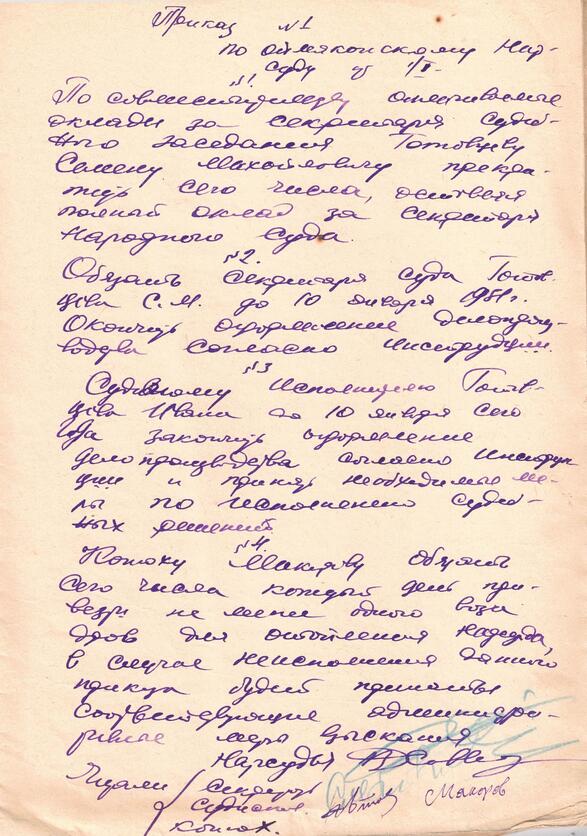 Приказ №1
по оймяконскому Нар-
суду от 1/I-
№1.
По совместительству оплачиваемые
оклади за секретаря судеб-
ного заседания Готовцеву
Семену Михайловичу прекра-
тить сего числа, оставить
полный оклад за секретаря
Народного Суда.
№2.
Обязать секретаря суда Готов.
цева С.М. до 10 января 1951г.
окончить оформление делопроиз-
водства согласно инструкции.
№3
Судебному исполнителю Готов-
цева Ивана до 10 января сего
года закончить оформление
делопроизводства согласно инструк
ции и принять необходимые ме-
ры по исполнению судеб-
ных решений
№4.
Конюху Макарову обязать
сего числа каждый день при-
везти не менее одного воза
дров для отопления нарсуда,
в случае неисполнения данного
приказа будет приняты
соответствующие администра-
тивные меры взыскания
Нарсудья
Читали секретарь
Судисполн.
конюх. Макаров